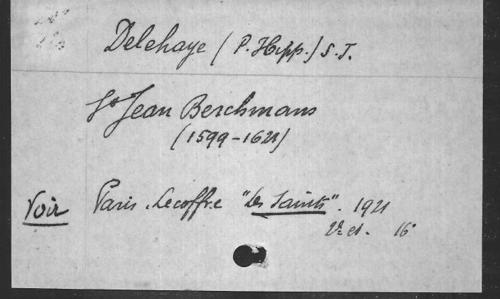 Delehaye (P. Hipp.) S.J.
St Jean Berchmans
(1599-1621)
Voir Paris. Lecoffre "Les Saints". 1921
2e ed. 16°